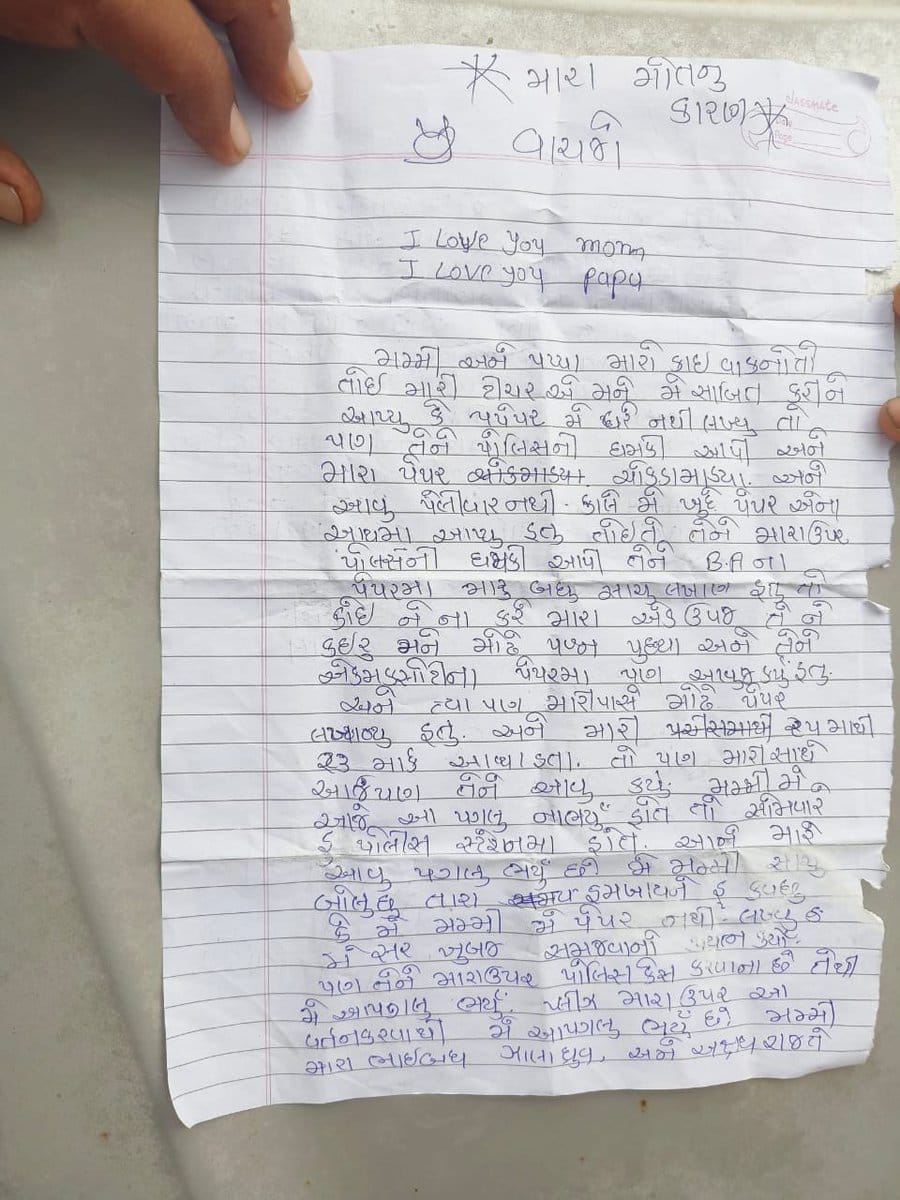 * મારા મોતનુ
કારણ *
classmate
Date
Page
વાચજો
I Love you mom
I LOVE you papa
મમ્મી અને પપ્પા મારો કાઇ વાકનોતો
તોઇ મારી ટીચર એ મને મે સાબિત કરીને
આપ્યુ કે પપેપર મે ઘરે નથી લખ્યુ તો
પણ તેને પોલિસની ધમકી આપી અને
મારા પેપર ચોકડામાડયા. અને
આવુ પેલીવાર નથી. કાલે મે ખુદ પેપર એના
આથમા આપ્યુ હતુ તોઇતે તેને મારાઉપર
પોલસની ધમકી આપી તેને B.A ના
પેપરમા મારૂ બધુ સાચુ લખાણ હતુ તો
કોઇ ને ના કરે મારા એક ઉપજ તે ને
કઇરુ મને મોઢે પણ પુછયા અને તેને
એકમકસોટીના પેપરમા પણ આવુજ કર્યુ હતુ.
અને ત્યા પણ મારીપાસે મોઢે પેપર
લખાવ્યુ હતુ. અને મારી ૨૫ માથી
૨૩ માર્ક આવ્યા હતા. તો પણ મારી સાથે
આજેપણ તેને આવુ કર્યુ. મમ્મી મે
આજે આ પગલુ નાભર્યુ હોત તો સોમવારે
હુ પોલીસ સ્ટેશનમા હોતે. આને મારે
આવુ પગલુ ભર્યુ છે. મે મમ્મી સાચુ
બોલુછુ તારા કમખાયને હુ કવછુ
કે મે મમ્મી મે પેપર નથી લખ્યુ
મે સર ખુબજ સમજવાની પ્રયત્ન કર્યો.
પણ તેને મારાઉપર પોલિસ કેસ કરવાના છે તેથી
મે આપગલુ ભર્યુ. પ્લીઝ મારા ઉપર આ
વર્તનકરવાથી મે આપગલુ ભર્યુ છે. મમ્મી
મારા ભાઇબંધ ધ્રુવ, અને